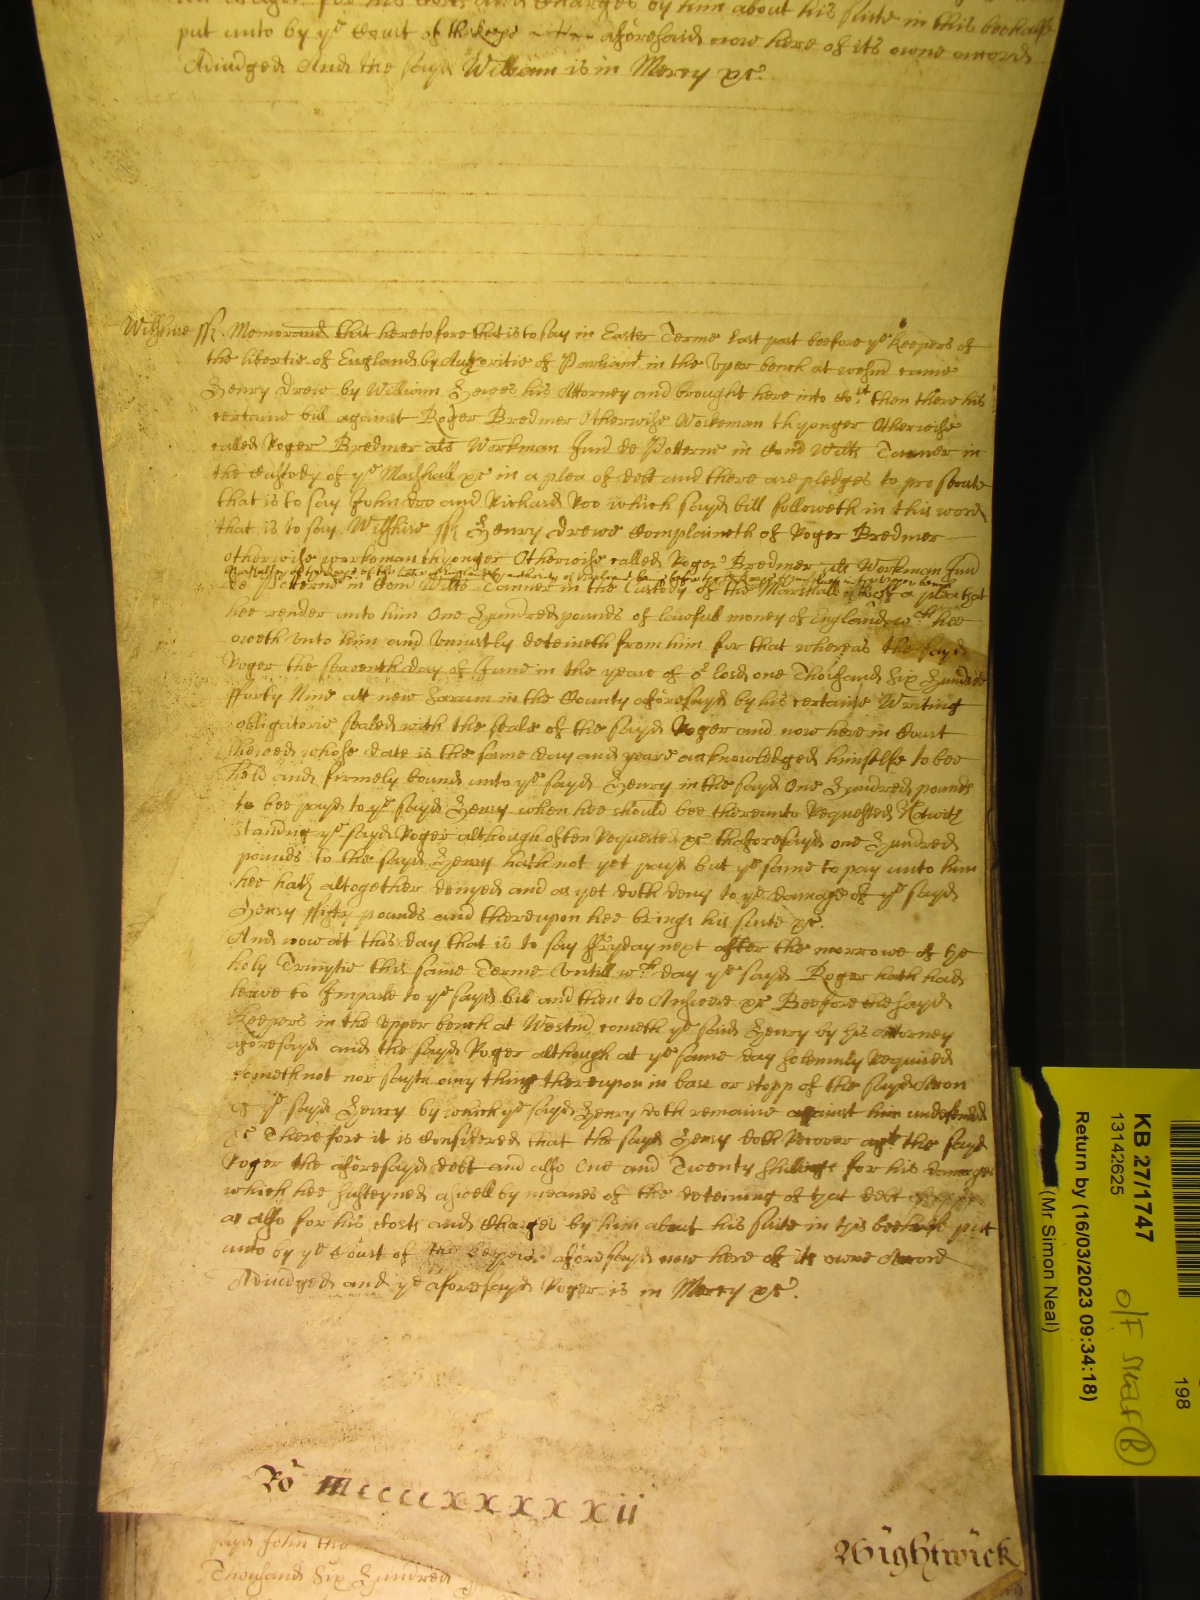 for his costs and Charges by him about his suite in this beehalfe
put unto by ye Court of the Keeps aforesaid now here of its owne accord
Adiudged And the sayd William is in Mercy &c.
Wiltshire ss. Memorand that heretofore that is to say in Easter Terme last past beefore ye Keepers of
the libertie of England by Authoritie of Parliamt in the Vper bench at westmr came
Henry Drew by William Hewes his Attorney and brought here into Cort then there his
certaine bill against Roger Bredmer Otherwise Workeman th yonger Otherwise
called Roger Bredmer als Workman Jund de Potterne in Comd Wilts Tanner in
the Custody of ye Marshall &c in a plea of debt and there are pledges to prosecute
that is to say John Doo and Richard Roo which sayd bill followeth in this word
that is to say Wiltshire ss. Henry Drewe Complaineth of Roger Bredmer
otherwise workeman th yonger Otherwise called Roger Bredmer als Workman Jund
de Potterne in Comd Wilts Tanner in the Custody of the Marshall of a plea that
hee render unto him One Hundred pounds of lawfull money of England wch hee
oweth vnto him and Vniustly deteineth from him for that whereas the sayd
Roger the seaventh day of June in the yeare of or lord one Thousand Six Hundred
fforty Nine att new Sarum in the County aforesayd by his certaine Writing
obligatorie sealed with the seale of the sayd Roger and now here in Court
shewed whose date is the same day and yeare acknowledged himselfe to bee
held and firmely bound unto ye sayd Henry in the sayd One Hundred pounds
to bee payd to ye sayd Henry when hee should bee thereunto Requested Notwith
standing ye sayd Roger although often Requested &c thaforesayd one Hundred
pounds to the sayd Henry hath not yet payd but ye same to pay unto him
hee hath altogether denyed and as yet doth deny to ye damage of ye sayd
Henry ffifty pounds and thereupon hee brings his suite &c.
And now at this day that is to say ffryday next after the morrowe of the
holy Trinytie this same Terme Vntill wch day ye sayd Roger hath had
leave to Imparle to ye sayd bill and then to Answere &c Beefore the sayd
Keepers in the Vpper bench at Westmr cometh ye said Henry by his Attorney
aforesayd and the sayd Roger although at ye same day solemnly Required
cometh not nor sayth any thing thereupon in barr or stopp of the sayd Accon
of ye sayd Henry by which ye sayd Henry doth remaine against him undefended
&c Therefore it is Considered that the sayd Henry doth Recover agt the sayd
Roger the aforesayd debt and also One and Twenty shillings for his damages
which hee susteyned aswell by meanes of the deteining of that debt
as also for his Costs and Charges by him about his suite in this beehalfe put
unto by ye Court of the Keepers aforesayd now here of its owne Accord
Adiudged and ye aforesayd Roger is in Mercy &c.
Ro mccccxxxxxxii
Wightwick
sayd John the
Thousand Six Hundred
KB 27/1747
13142625
Return by (16/03/2023 09:34:18)
(Mr Simon Neal)
198